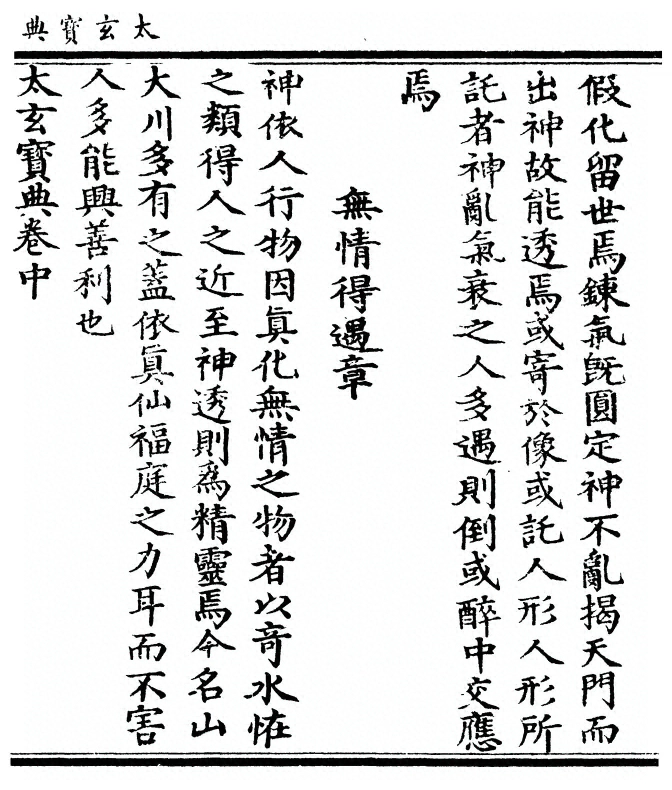 太玄寶典
假化留世焉鍊氣旣圓定神不亂揭天門而
出神故能透焉或寄於像或託人形人形所
託者神亂氣衰之人多遇則倒或醉中交應
焉
無情得遇章
神依人行物因眞化無情之物者以竒水恠
之類得人之近至神透則爲精靈焉今名山
大川多有之蓋依眞仙福庭之力耳而不害
人多能興善利也
太玄寶典卷中